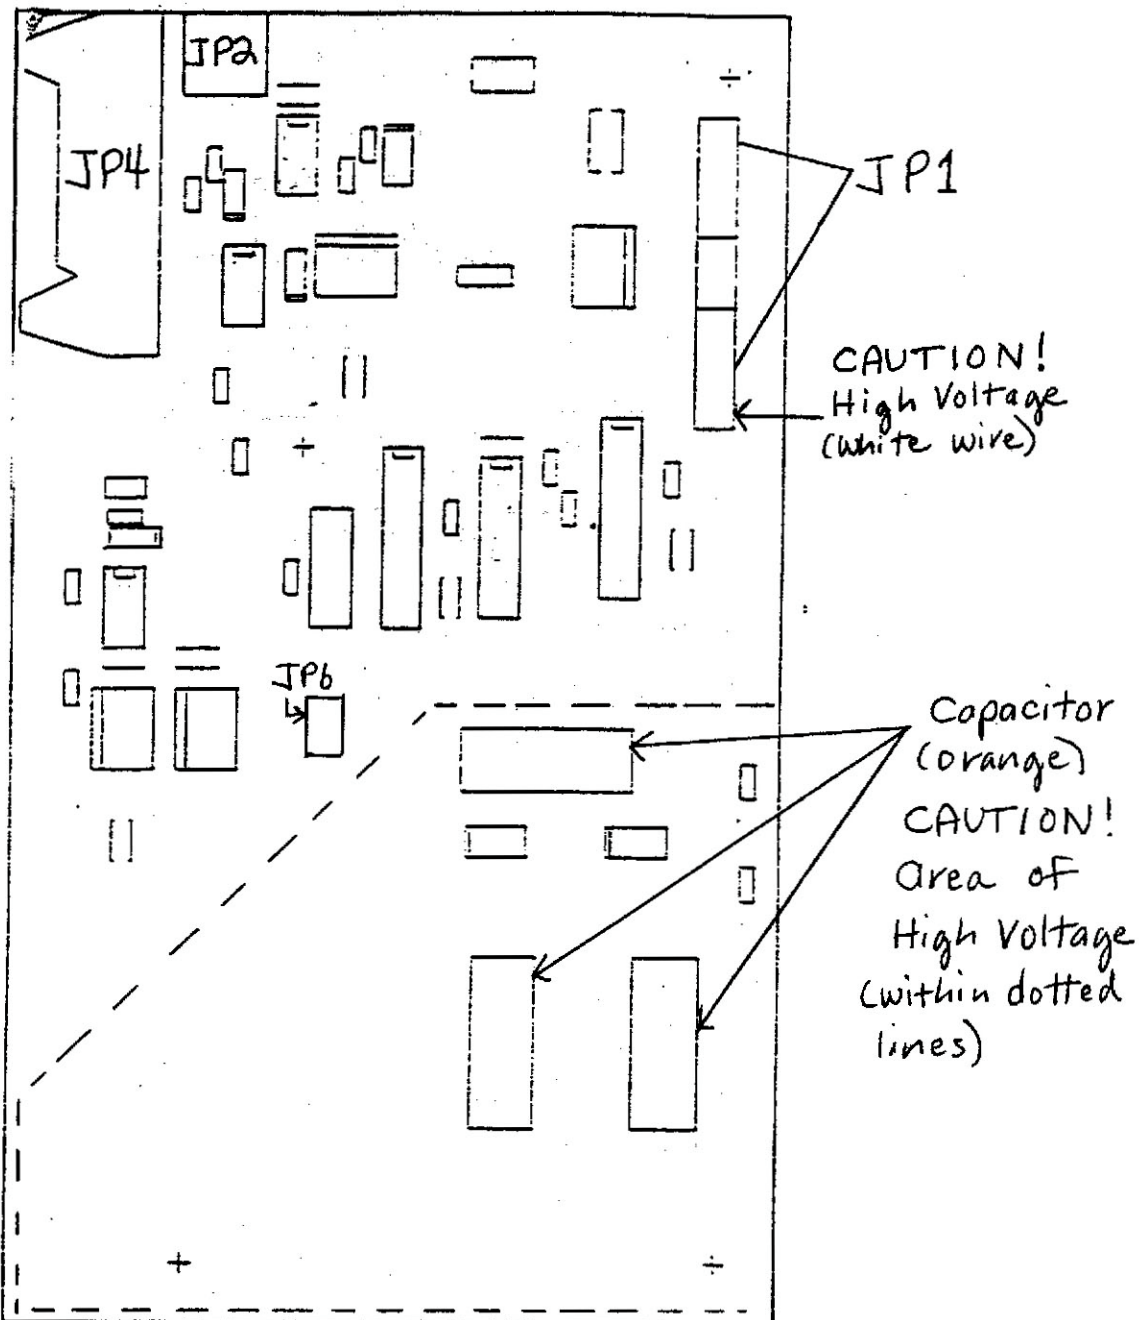 JP2
JP4
JP1
CAUTION!
High Voltage
(white wire)
JP6
Capacitor
(orange)
CAUTION!
area of
High Voltage
(within dotted
lines)